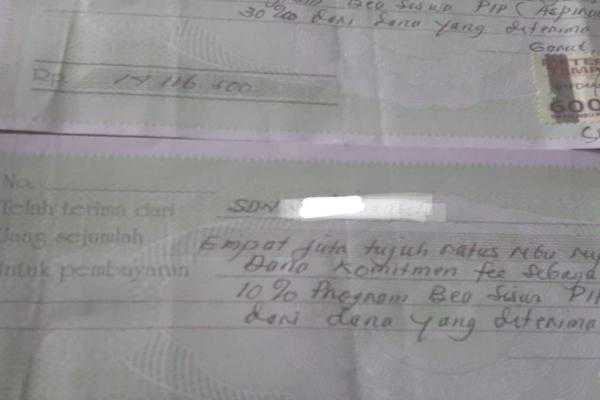 Bea Siswa PIP (Aspira
30 % dari dana yang diterima
Garut,
METER
TEMP
600
Rp. 14.116.500
No.
Telah terima dari SDN
Uang sejumlah Empat Juta tujuh ratus ribu
Untuk pembayaran Dana Komitmen fee Sebaga
10 % Program Bea Siswa PIP
dari dana yang diterima